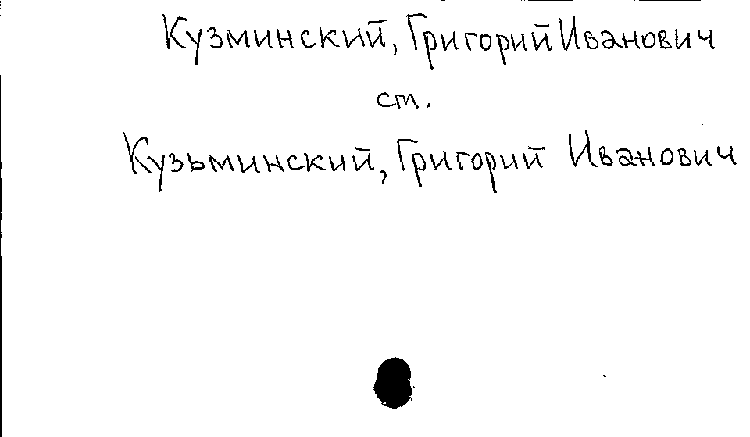 Кузминский, Григорий Иванович
см.
Кузьминский, Григорий Иванович